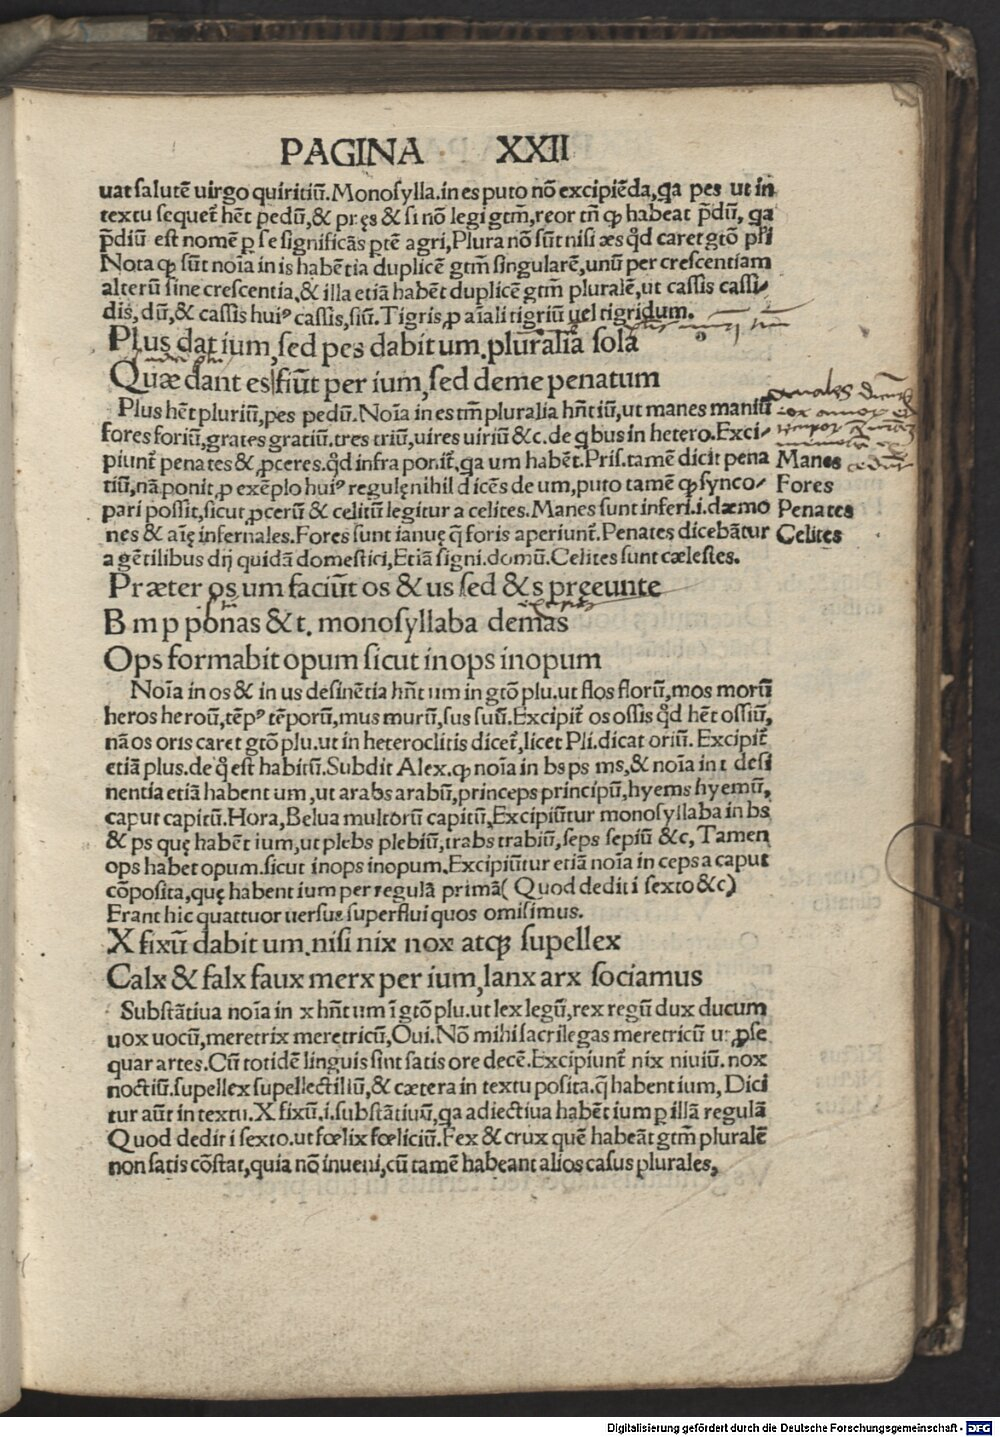 PAGINA XXII
uat salutē uirgo quiritiū. Monosylla. in es puto nō excipiēda, qa pes ut in
textu sequet̄ hēt pedū, & pręs & si nō legi gtm̄, reor tñ ꝙ habeat p̄dū, qa
p̄diū est nomē ꝑ se significās ptē agri, Plura nō sūt nisi æs qd̄ caret gtō płi
Nota ꝙ sūt noīa in is habētia duplicē gtm̄ singularē, unū per crescentiam
alterū sine crescentia, & illa etiā habēt duplicē gtm̄ pluralē, ut cassis cassi/
dis, dū, & cassis huiꝰ cassis, siū. Tigris, ꝓ aīali tigriū uel tigridum.
Plus dat ium, sed pes dabit um. pluralia sola
Quæ dant es fiūt per ium, sed deme penatum
Plus hēt pluriū, pes pedū. Noīa in es tm̄ pluralia hñt iū, ut manes maniū
fores foriū, grates gratiū. tres triū, uires uiriū &c. de qbus in hetero. Exci/
piunt̄ penates & ꝓceres. qd̄ infra ponit̄, qa um habēt. Pris. tamē dicit pena
tiū, nā ponit, ꝓ exēplo huiꝰ regulę nihil dicēs de um, puto tamē ꝙ synco/
pari possit, sicut ꝓcerū & celitū legitur a celites. Manes sunt inferi. i. dæmo
nes & aīę infernales. Fores sunt ianuę q̄ foris aperiunt̄. Penates dicebātur
a gētilibus dij quidā domestici, Etiā signi. domū. Celites sunt cælestes.
Manes
Fores
Penates
Celites
Præter os um faciūt os & us sed & s preeunte
B m p ponas & t. monosyllaba demas
Ops formabit opum sicut inops inopum
Noīa in os & in us desinētia hñt um in gtō plu. ut flos florū, mos morū
heros heroū, tēpꝰ tēporū, mus murū, sus suū. Excipit̄ os ossis qd̄ hēt ossiū,
nā os oris caret gtō plu. ut in heteroclitis dicet̄, licet Pli. dicat oriū. Excipit̄
etiā plus. de q̄ est habitū. Subdit Alex. ꝙ noīa in bs ps ms, & noīa in t desi
nentia etiā habent um, ut arabs arabū, princeps principū, hyems hyemū,
caput capitū. Hora, Belua multorū capitū, Excipiūtur monosyllaba in bs
& ps quę habēt ium, ut plebs plebiū, trabs trabiū, seps sepiū &c, Tamen
ops habet opum. sicut inops inopum. Excipiūtur etiā noīa in ceps a caput
cōposita, quę habent ium per regulā primā( Quod dedit i sexto &c)
Erant hic quattuor uersus superflui quos omisimus.
X fixū dabit um. nisi nix nox atqꝫ supellex
Calx & falx faux merx per ium, lanx arx sociamus
Substātiua noīa in x hñt um ī gtō plu. ut lex legū, rex regū dux ducum
uox uocū, meretrix meretricū, Oui. Nō mihi sacrilegas meretricū ut ꝓse
quar artes. Cū totidē linguis sint satis ore decē. Excipiunt̄ nix niuiū. nox
noctiū. supellex supellectiliū, & cætera in textu posita. q̄ habent ium, Dici
tur aūt in textu. X fixū. i. substātiuū, qa adiectiua habēt ium ꝑ illā regulā
Quod dedit i sexto. ut fœlix fœliciū. Fex & crux quē habeāt gtm̄ pluralē
non satis cōstat, quia nō inueni, cū tamē habeant alios casus plurales,
Digitalisierung gefördert durch die Deutsche Forschungsgemeinschaft - DFG